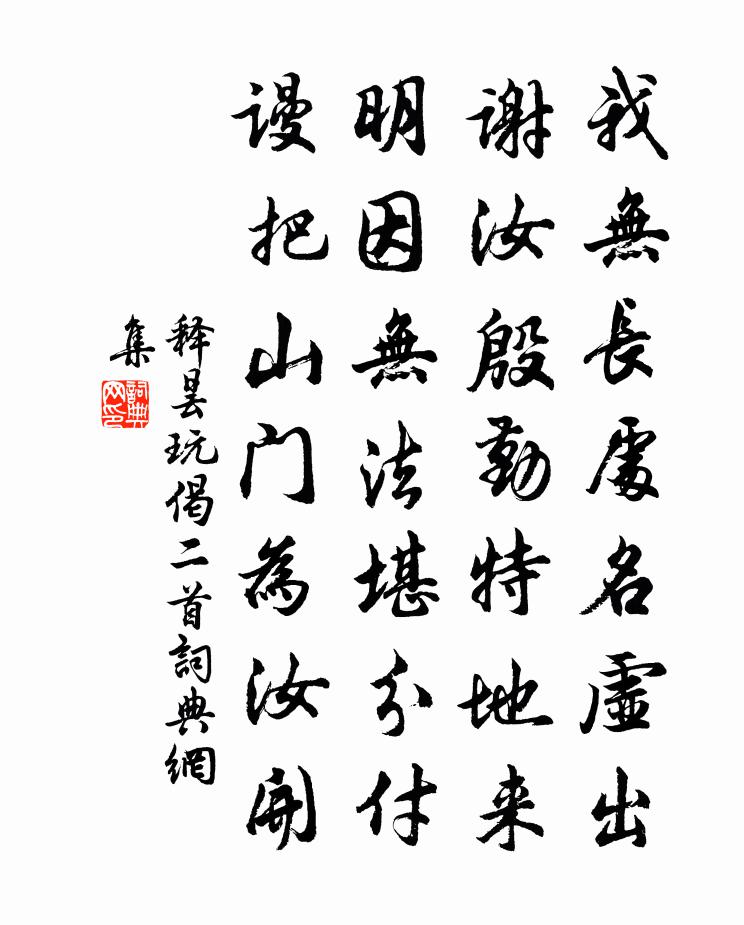 我無長處名虛出
謝汝殷勤特地来
明因無法堪分付
谩把山门為汝開
释昙玩偈二首詞典網
集
詞典网印